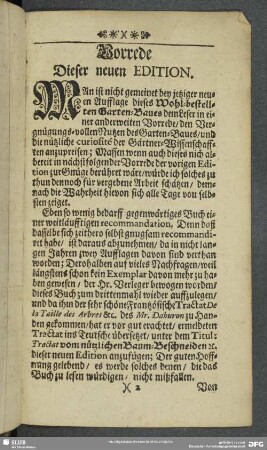 Vorrede
Dieser neuen EDITION.
MAn ist nicht gemeinet bey jetziger neu-
en Aufflage dieses Wohl-bestell-
ten Garten-Baues dem Leser in ei-
ner anderweiten Vorrede/ den Ver-
gnügungs-vollen Nutzen des Garten-Baues/ und
die nützliche curiosité der Gärtner-Wissenschaff-
ten anzupreisen; Massen wenn auch dieses nich al-
bereit in nächstfolgender Vorrede der vorigen Edi-
tion zur Gnüge berühret wäre/ würde ich solches zu
thun dennoch für vergebene Arbeit schätzen/ dem-
nach die Wahrheit hievon sich alle Tage von selb-
sten zeiget.
Eben so wenig bedarff gegenwärtiges Buch ei-
ner weitläufftigen recommandation, Denn daß
dasselbe sich zeithero selbst gnugsam recommandi-
vet habe/ ist daraus abzunehmen/ da in nicht lan-
gen Jahren zwey Aufflagen davon sind verthan
worden; Derohalben auf vieles Nachfragen/ weil
längstens schon kein Exemplar davon mehr zu ha-
ben gewesen/ der Hr. Verleger bewogen worden/
dieses Buch zum drittenmahl wieder aufzulegen/
und da ihm der sehr schöne Frantzösische Tractat De
la Taille des Arbres &c. des Mr. Dahuron zu Han-
den gekommen/ hat er vor gut erachtet/ ermeldeten
Tractat ins Teutsche übersetzet/ unter dem Titul:
Tractat vom nützlichen Baum-Beschneiden ꝛc.
dieser neuen Edition anzufügen; Der guten Hoff-
nung gelebend/ es werde solches denen/ die das
Buch zu lesen würdigen/ nicht mißfallen.
)( 2 Von
SLUB
DFG